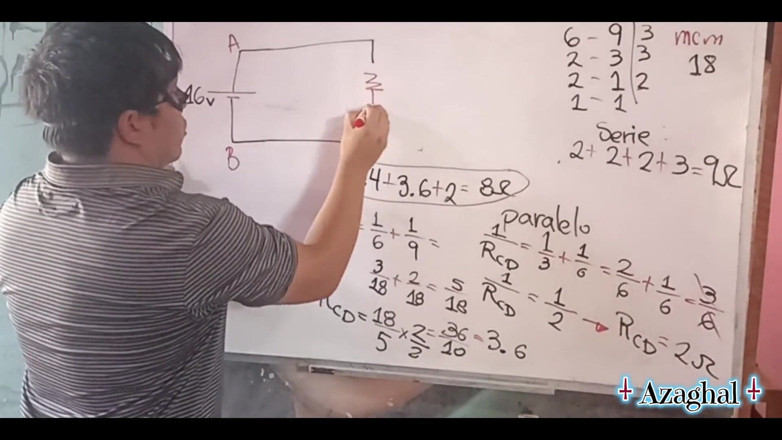 A
16v
B
6 - 9 | 3
2 - 3 | 3
2 - 1 | 2
1 - 1
mcm
18
Serie
2 + 2 + 2 + 3 = 9Ω
4 + 3.6 + 2 = 8Ω
= 1/6 + 1/9 =
3/18 + 2/18 = 5/18
RCD = 18/5 × 2/2 = 36/10 = 3.6
paralelo
1/RCD = 1/3 + 1/6 = 2/6 + 1/6 = 3/6
1/RCD = 1/2 → RCD = 2Ω
Azaghal